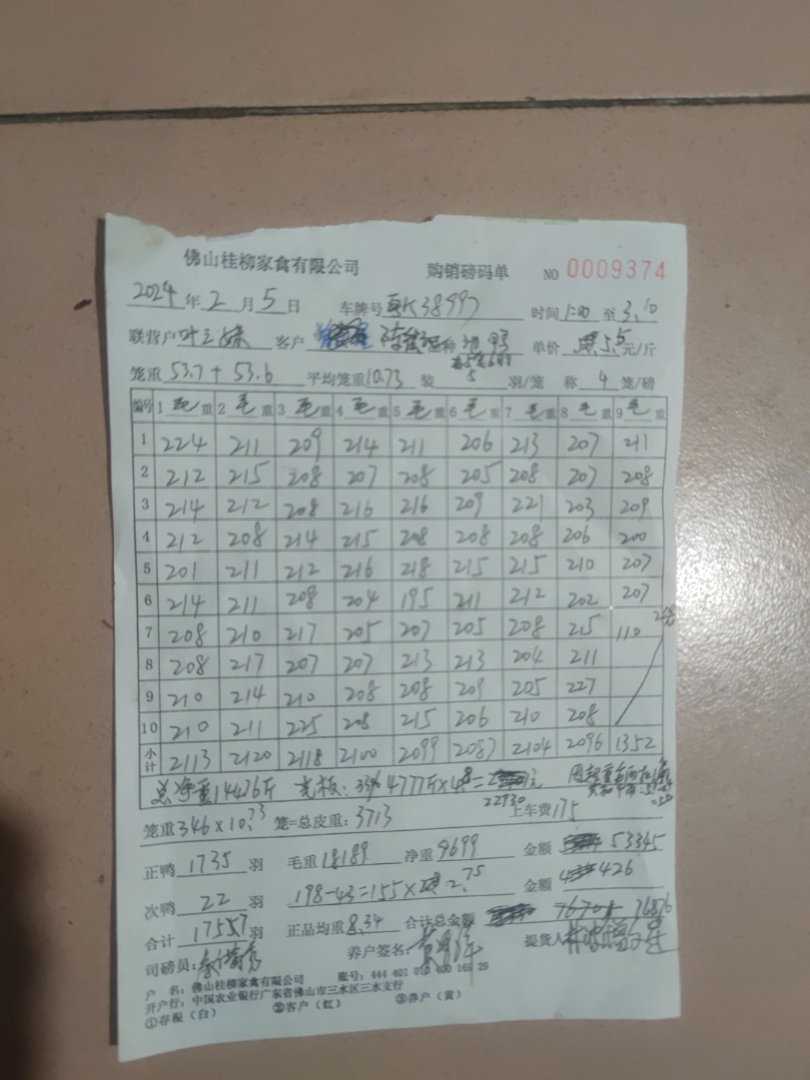 佛山桂柳家禽有限公司 购销磅码单 NO 0009374
2024年2月5日 车牌号 K38997 时间 1:00 至 3:10
联营户 叶 妹 客户 单价 5.5元/斤
笼重 53.7+53.6 平均笼重10.73 装 5 羽/笼 称 4 笼/磅
编号 1 毛重 2 毛重 3 毛重 4 毛重 5 毛重 6 毛重 7 毛重 8 毛重 9 毛重
1 224 211 209 214 211 206 213 207 211
2 212 215 208 207 208 205 208 207 208
3 214 212 208 216 216 209 221 203 209
4 212 208 214 215 208 208 208 206 200
5 201 211 212 216 218 215 215 210 207
6 214 211 208 204 195 211 212 202 207
7 208 210 217 205 207 205 208 215 110
8 208 217 207 207 213 213 204 211
9 210 214 210 208 208 209 205 227
10 210 211 225 208 215 206 210 208
小计 2113 2120 2118 2100 2099 2087 2104 2096 1352
总净重14476斤 4777斤×4.8= 元
22930
笼重 346×10.73 笼=总皮重: 3713 上车费175
正鸭 1735 羽 毛重 18189 净重 9699 金额 53345
次鸭 22 羽 198-43=155×2.75 金额 426
合计 17557 羽 正品均重 8.34 合计总金额 76701 76876
司磅员: 养户签名: 提货人
户 名: 佛山桂柳家禽有限公司 账号: 444 401 010 400 165 29
开户行: 中国农业银行广东省佛山市三水区三水支行
①存根（白） ②客户（红） ③养户（黄）